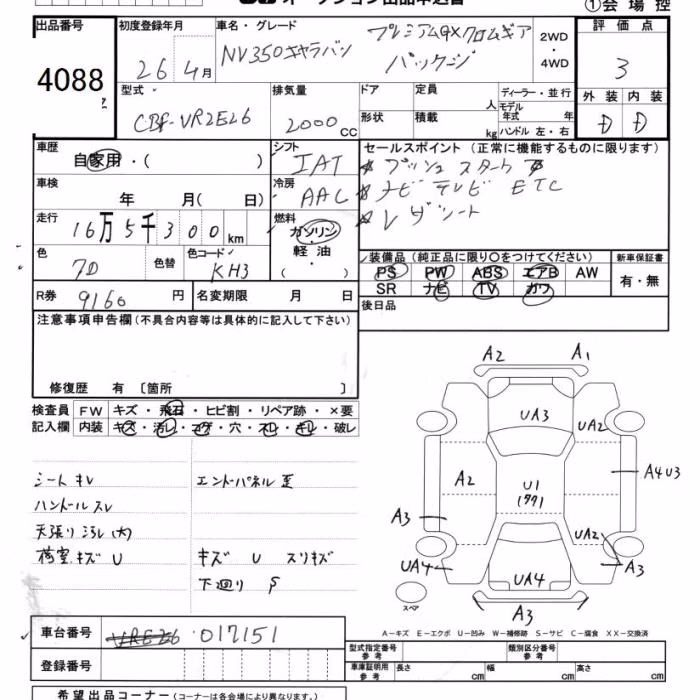 オークション出品申込書
①会場控
出品番号 初度登録年月 車名・グレード 2WD・4WD 評価点
4088 26 4月 NV350キャラバン プレミアムGXクロムギアパッケージ 3
型式 排気量 ドア 定員 人 ディーラー・並行 外装 内装
CBF-VR2E26 2000 CC 形状 積載 kg モデル年式 年 ハンドル 左・右 D D
車歴 シフト セールスポイント (正常に機能するものに限ります)
自家用・( ) IAT プッシュスタート
車検 年 月( 日) 冷房 AAC ナビ テレビ ETC
走行 16万5千300km 燃料 ガソリン・軽油・ レザーシート
色 色替 色コード
7D KH3
装備品 (純正品に限り○をつけてください) 新車保証書
PS PW ABS エアB AW 有・無
SR ナビ TV カワ
R券 9160 円 名変期限 月 日 後日品
注意事項申告欄(不具合内容等は具体的に記入して下さい)
修復歴 有 〔箇所 〕
検査員 FW キズ・飛石・ヒビ割・リペア跡・×要
記入欄 内装 キズ・汚レ・コゲ・穴・スレ・キレ・破レ
シート キレ エンドパネル 歪
ハンドル スレ
天張り ヨゴレ(大)
荷室 キズ U キズ U スリキズ
下廻り S
A2 A1
UA3 UA2
A2 U1 A4U3
(77)
A3 UA2
UA4 UA4 A3
A3
スペア
A－キズ E－エクボ U－凹み W－補修跡 S－サビ C－腐食 XX－交換済
車台番号 VRE26 017151
登録番号
型式指定番号 参考 類別区分番号 参考
車庫証明用 参考 長さ cm 幅 cm 高さ cm
希望出品コーナー (コーナーは各会場により異なります。)